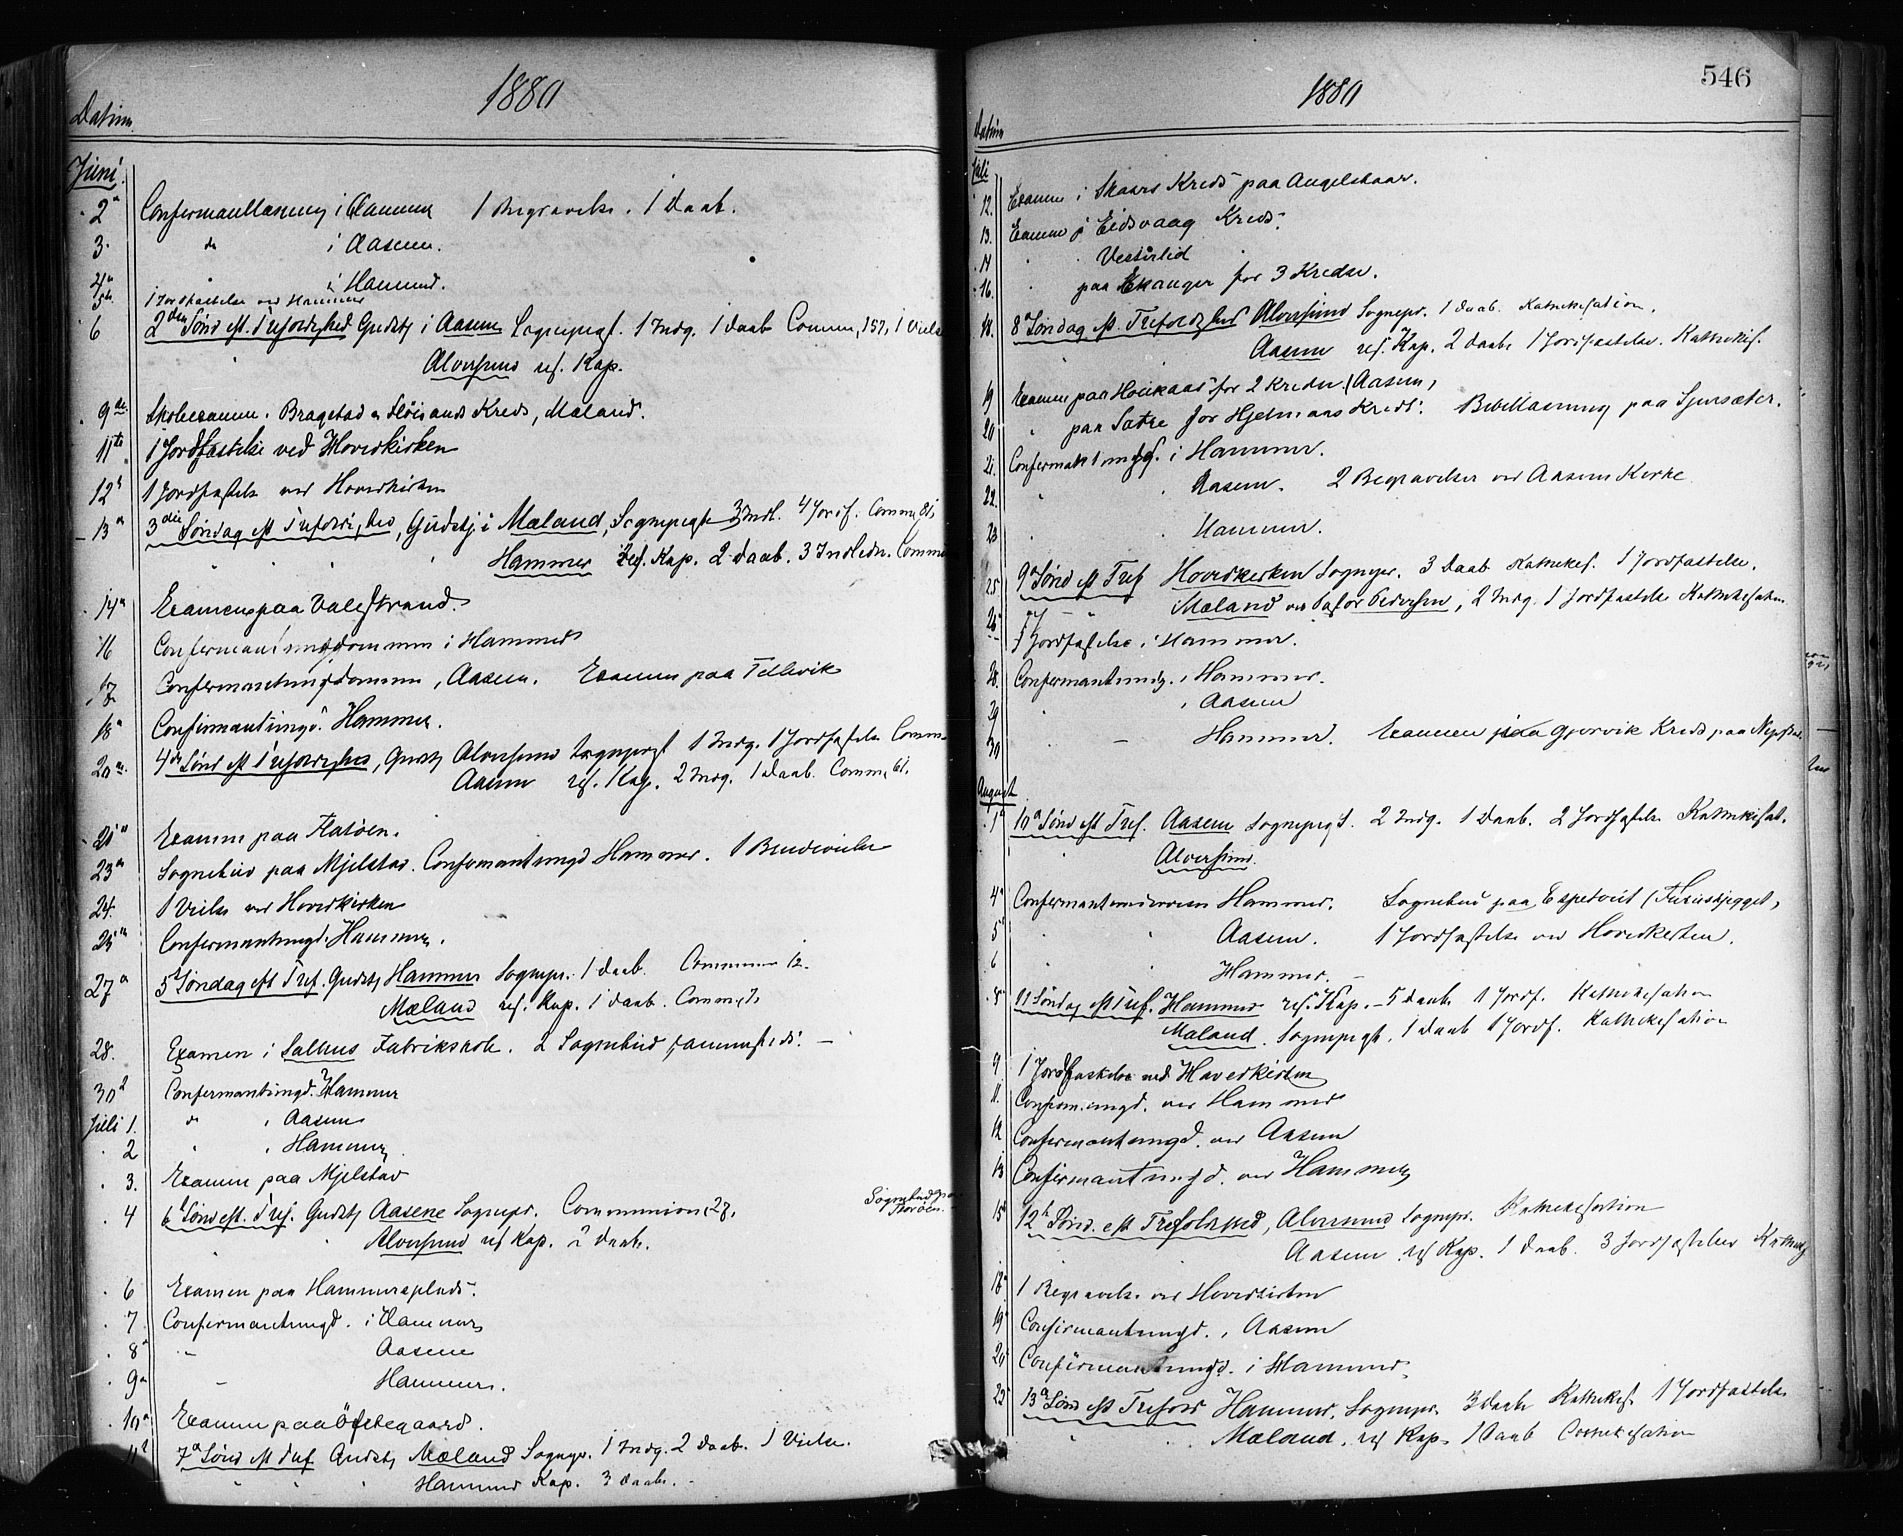 1880
Datum
Juni.
2 Confermantlæsning i Hammer 1 Begravelse. 1 Daab.
3. do i Aasene.
4 " i Hammer.
5te 1 Jordfæstelse ved Hammer
6 2den Sønd eft. Trefoldighed Gudstj i Aasene Sognepræst. 1 Indg. 1 Daab Commu, 157, 1 Vielse
" Alversund res. Kap.
9de Skoleexamen. Bragstad Kreds, Mæland.
11te 1 Jordfæstelse ved Hovedkirken
12 1 Jordfæstelse ved Hovedkirken
13 3die Søndag eft Trefoldighed, Gudstj. i Mæland, Sognepræst 3 Indl. 4 Jordf. Commu 81,
" " Hammer Res. Kap. 2 Daab. 3 Indledn. Commu
14 Examen paa Valestrand.
16 Confermantungdommen i Hammer
17 Confermantungdommen, Aasene. Examen paa Tellevik
18 Confirmantungd. Hammer.
20 4de Sønd eft Trefoldighed, Gudstj Alversund Sognepræst 1 Indg. 1 Jordfæstelse Commu
Aasene res. Kap. 2 Indg. 1 Daab. Commu, 61.
21 Examen paa Flatøen.
23 Sognebud paa Mjelstad. Confermantungd Hammer. 1 Brudevielse
24. 1 Vielse ved Hovedkirken
25 Confermantungd. Hammer.
27 5 Søndag eft Tref. Gudstj Hammer Sognepr. 1 Daab. Communion 12.
Mæland res. Kap. 1 Daab. Commu,
28. Examen i Salhus Fabrikskole. 2 Sognebud sammesteds. —
30 Confermantungd. Hammer
Juli 1. do , Aasene
2 " , Hammer
3. Examen paa Mjelstad
4 6 Sønd eft. Tref. Gudstj Aasene Sognepr. Communion, 27. Sognebud paa
" Alversund res Kap. 2 Daab.
6 Examen paa Hammersplads.
7 Confermantungd. i Hammer
8 " Aasene
9 " Hammer.
10 Examen paa Øfstegaard.
11 7 Sønd eft Tref Gudstj Mæland Sognepr. 1 Indg. 2 Daab. 1 Vielse.
" " Hammer Kap. 3 Daab. -
546
1880
Datum
Juli
12. Examen i Skaars Kreds paa Angelskaar.
13. Examen i Eidsvaag Kreds.
14 " Vestrelid
16. " paa Ekanger for 3 Kredse.
18. 8 Søndag eft. Trefoldighed Alversund Sognepr. 1 Daab. Katekisation.
Aasene res. Kap. 2 Daab 1 Jordfæstelse. Katekis.
19 Examen paa Houkaas for 2 Kredse (Aasene,
20 " paa Sætre for Hjelmaas Kreds. Bibellæsning paa Sjursæter.
21 Confermantungd. i Hammer.
22. " " Aasene. 2 Begravelser ved Aasene Kirke
23 " Hammer.
25 9 Sønd eft Tref Hovedkirken Sognepr. 3 Daab Katekes. 1 Jordfæstelse.
" Mæland ved Pastor Pedersen, 2 Indg. 1 Jordfæstelse Katekesation
26 1 Jordfæstelse i Hammer.
28. Confermantundg. , Hammer.
29 , Aasene
30 " — Hammer. Examen paa Gjervik Kreds paa
August
1 10 Sønd eft Tref. Aasene Sognepræst. 2 Indg. 1 Daab. 2 Jordfæstelse Katekisat.
" Alversund.
4 Confermantunderv Hammer. Sognebud paa Espetveit
5 " Aasene. 1 Jordfæstelse ved Hovedkirken.
6 " Hammer. —
8 11 Søndag eft Tref. Hammer res. Kap. - 5 Daab 1 Jordf. Katekesation
Mæland. Sognepræst. 1 Daab 1 Jordf. Katekesation
9 1 Jordfæstelse ved Hovedkirken
11. Conferm.ungd. ved Hammer
12 Confermantungd. ved Aasene
13 Confirmantungd. ved Hammer
15 12 Sønd. eft Trefoldighed, Alversund Sognepr. Katekesation
Aasene res Kap. 1 Daab. 3 Jordfæstelser Katekes
18 1 Begravelse ved Hovedkirken
19 Confirmantungd. , Aasene
20 Confirmantungd. i Hammer
22 13 Sønd eft Trefold Hammer, Sognepr. 3 Daab Katekes. 1 Jordfæstelse
" Mæland, res Kap. 1 Daab Catekesation